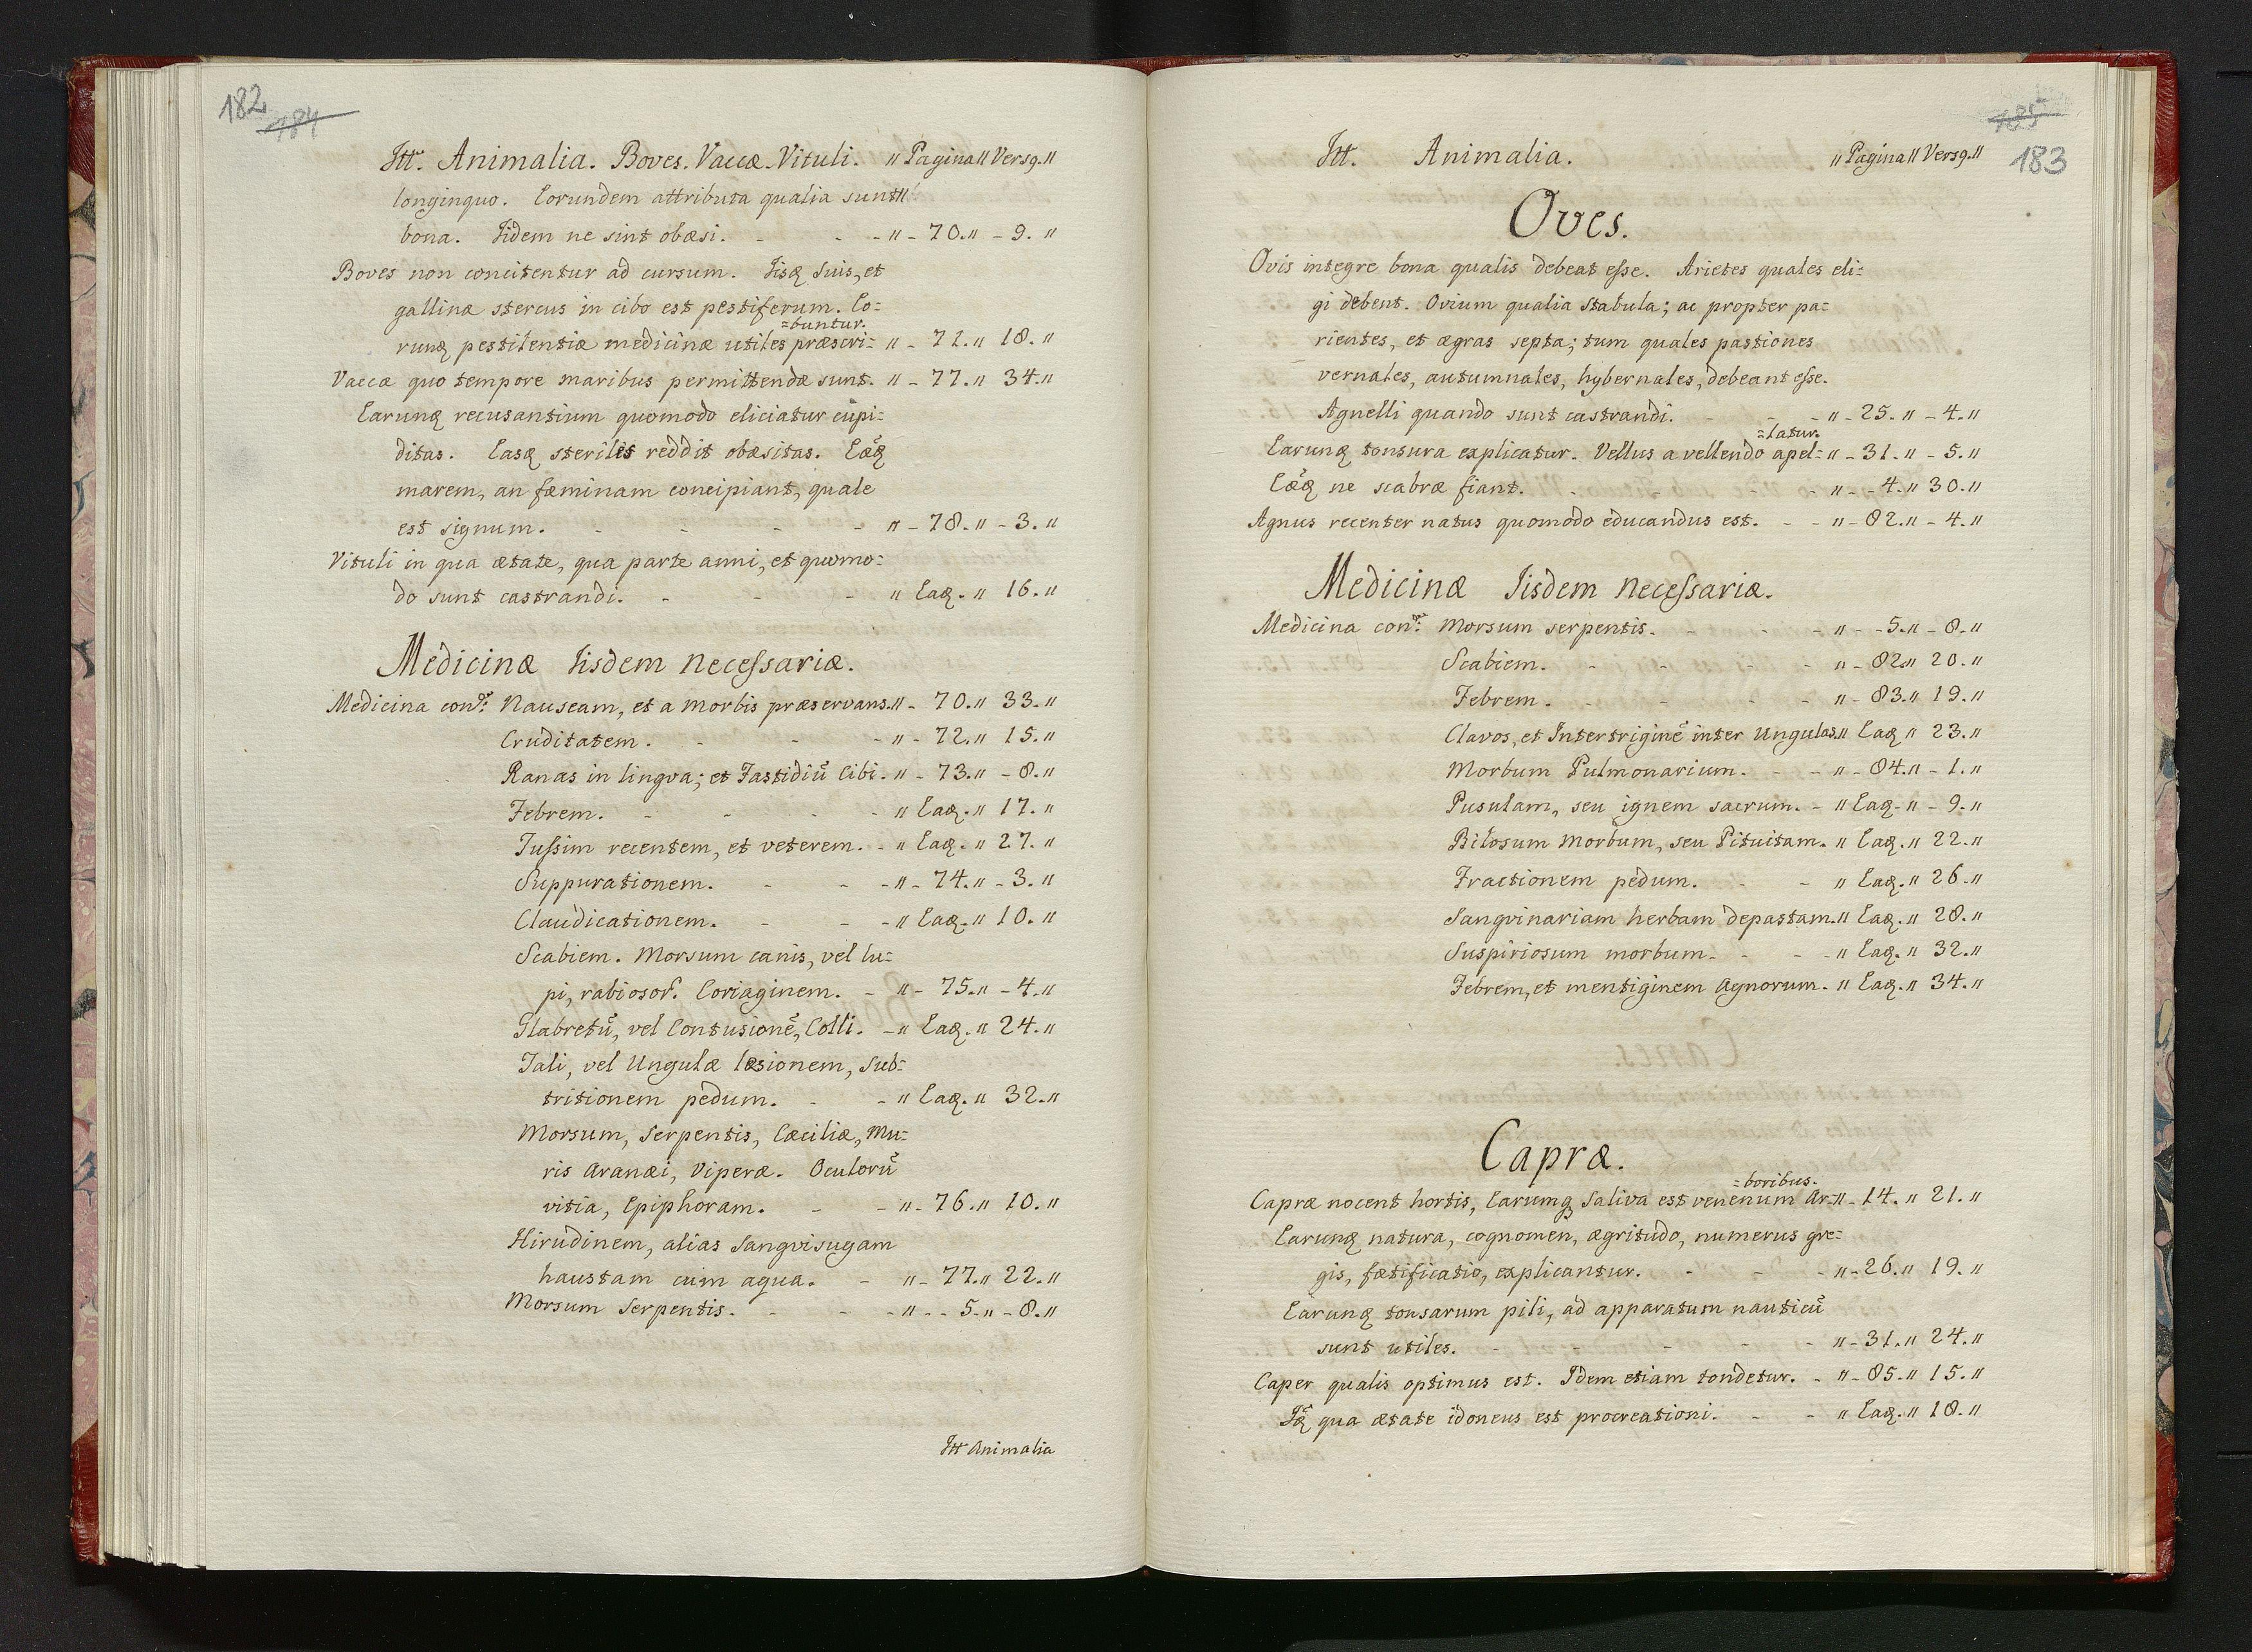 182
184
Itt. Animalia. Boves. Vaccæ. Vituli. " Pagina " Versq. "
longinquo. Eorundem attributa qualia sunt "
bona. Iidem ne sint obæsi. - - - " - 70. " - 9. "
Boves non concitentur ad cursum. Iisq̃ Suis, et
gallinæ stercus in cibo est pestiferum. Eo=
=buntur.
runq̃ pestilentiæ medicinæ utiles præscri= " - 71. " 18. "
Vaccæ quo tempore maribus permittendæ sunt. " - 77. " 34. "
Earunq̃ recusantium quomodo eliciatur cupi=
ditas. Easq̃ steriles reddit obæsitas. Eæq̃
marem, an fæminam concipiant, quale
est signum. - - - - " - 78. " - 3. "
Vituli in qua ætate, qua parte anni, et quomo=
do sunt castrandi. - - - " Eaq̃. " 16. "
Medicinæ Iisdem necessariæ.
Medicina con: Nauseam, et a morbis præservans. " - 70. " 33. "
Cruditatem. - - - " - 72. " 15. "
Ranas in lingva; et Fastidiũ Cibi. " - 73. " - 8. "
Febrem. - - - - " Eaq̃. " 17. "
Tussim recentem, et veterem. - " Eaq̃. " 27. "
Suppurationem. - - - " - 74. " - 3. "
Claudicationem. - - - " Eaq̃. " 10. "
Scabiem. Morsum canis, vel lu=
pi, rabiosor. Coriaginem. - " - 75. " - 4. "
Glabretũ, vel Contusionẽ, Colli. - " Eaq̃. " 24. "
Tali, vel Ungulæ læsionem, Sub=
tritionem pedum. - - " Eaq̃. " 32. "
Morsum, Serpentis, Cæciliæ, Mu=
ris Aranæi, Viperæ. Oculorũ
vitia, Epiphoram. - - " - 76. " 10. "
Hirudinem, alias Sangvisugam
haustam cum aqua. - " - 77. " 22. "
Morsum Serpentis. - - - " - - 5. " - 8. "
Itt Animalia
185
183
Itt. Animalia. " Pagina " Versq. "
Oves.
Ovis integre bona qualis debeat esse. Arietes quales eli=
gi debent. Ovium qualia stabula; ac propter pa=
rientes, et ægras septa; tum quales pastiones
vernales, autumnales, hybernales, debeant esse.
Agnelli quando sunt castrandi. - - - " - 25. " - 4. "
=latur.
Earunq̃ tonsura explicatur. Vellus a vellendo apel= " - 31. " - 5. "
Eæq̃ ne scabræ fiant. - - - - " - - 4. " 30. "
Agnus recenter natus quomodo educandus est. - - " - 82. " - 4. "
Medicinæ Iisdem necessariæ.
Medicina con: Morsum serpentis. - - - " - - 5. " - 8. "
Scabiem. - - - - " - 82. " 20. "
Febrem. - - - - " - 83. " 19. "
Clavos, et Intertriginẽ inter Ungulas. " Eaq̃ " 23. "
Morbum Pulmonarium. - - " - 84. " - 1. "
Pusulam, seu ignem sacrum. - " Eaq̃. " - 9. "
Bilosum Morbum, seu Pituitam. " Eaq̃. " 22. "
Fractionem pedum. - - " Eaq̃. " 26. "
Sangvinariam herbam depastam. " Eaq̃. " 28. "
Suspiriosum morbum. - - - " Eaq̃. " 32. "
Febrem, et mentiginem Agnorum. " Eaq̃. " 34. "
Capræ.
=boribus.
Capræ nocent hortis, Earumq̃ Saliva est venenum Ar= " - 14. " 21. "
Earunq̃ natura, cognomen, ægritudo, numerus gre=
gis, fætificatio, explicantur. - - - " - 26. " 19. "
Earunq̃ tonsarum pili, ad apparatum nauticũ
sunt utiles. - - - - - " - 31. " 24. "
Caper qualis optimus est. Idem etiam tondetur. - " - 85. " 15. "
Iq̃ qua ætate idoneus est procreationi. - - " Eaq̃. " 18. "